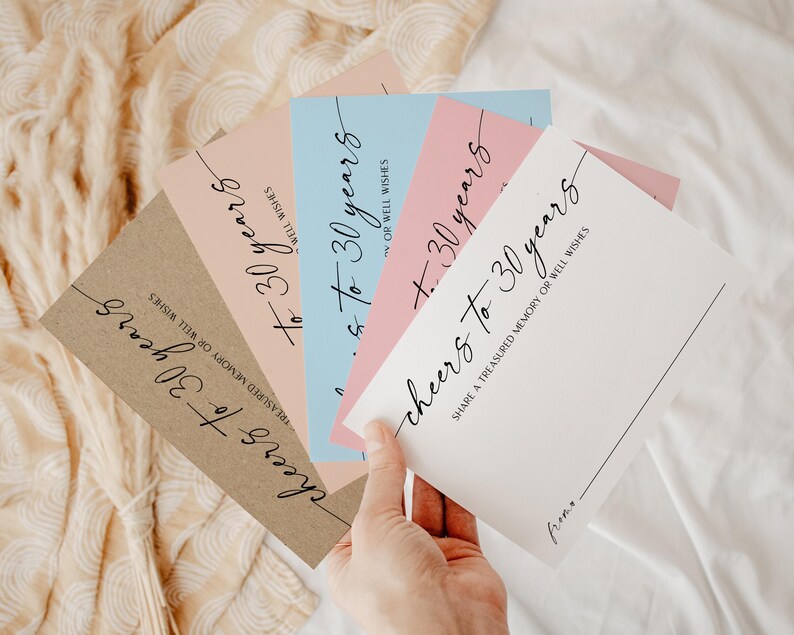 cheers to 30 years
TREASURED MEMORY OR WELL WISHES
to 30 years
WELL WISHES
to 30 years
OR WELL WISHES
to 30 years
OR WELL WISHES
cheers to 30 years
SHARE A TREASURED MEMORY OR WELL WISHES
from